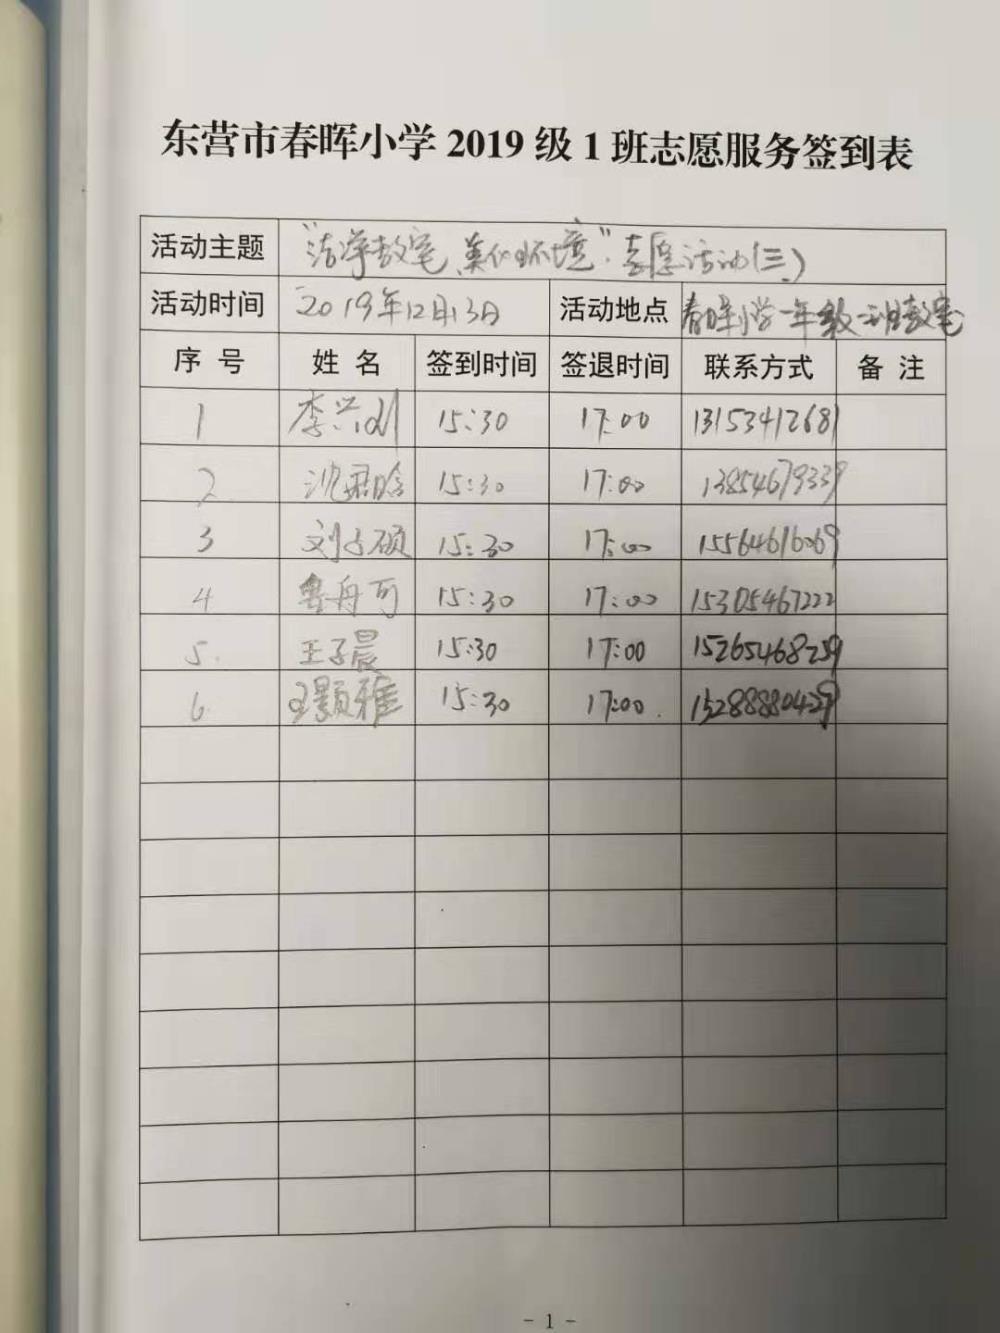 东营市春晖小学 2019 级 1 班志愿服务签到表
活动主题 “洁净教室,美化环境”志愿活动(三)
活动时间 2019年12月13日 活动地点 春晖小学一年级一班教室
序 号 姓 名 签到时间 签退时间 联系方式 备 注
1 李兴 15:30 17:00 13153412681
2 沈君晗 15:30 17:00 13854679339
3 刘子硕 15:30 17:00 15564616069
4 鲁舟可 15:30 17:00 15305467222
5. 王子晨 15:30 17:00 15265468259
6. 王颢雅 15:30 17:00. 15288880429
- 1 -